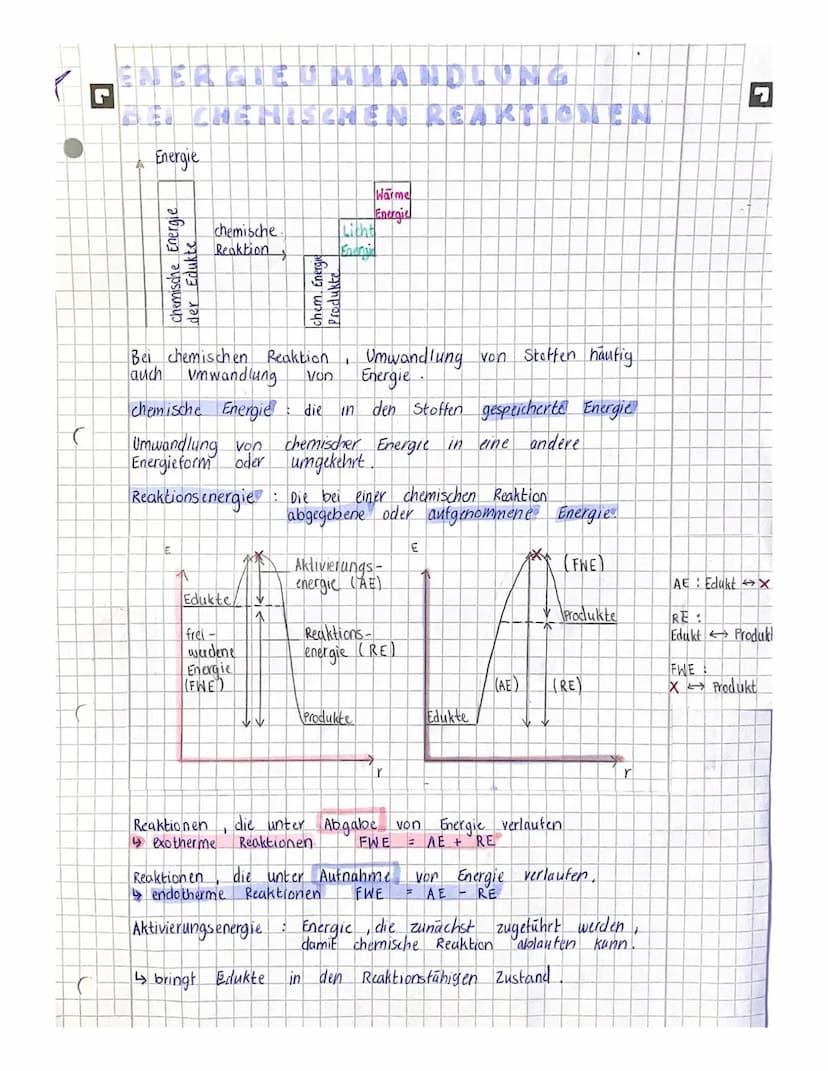 ENERGIEUMWANDLUNG
BEI CHEMISCHEN REAKTIONEN
Energie
chemische Energie
der Edukte
chemische
Reaktion
chem. Energie
Produkte
Licht
Energie
Wärme
Energie
Bei chemischen Reaktion, Umwandlung von Stoffen häufig
auch Umwandlung von Energie.
chemische Energie : die in den Stoffen gespeicherte Energie
Umwandlung von chemischer Energie in eine andere
Energieform oder umgekehrt.
Reaktionsenergie : Die bei einer chemischen Reaktion
abgegebene oder aufgenommene Energie.
E
Edukte
frei-
werdene
Energie
(FWE)
Aktivierungs-
energie (AE)
Reaktions-
energie (RE)
Produkte
r
E
(FWE)
Produkte
(AE)
(RE)
Edukte
r
AE : Edukt ↔ X
RE :
Edukt ↔ Produkt
FWE :
X ↔ Produkt
Reaktionen, die unter Abgabe von Energie verlaufen
↳ exotherme Reaktionen FWE = AE + RE
Reaktionen, die unter Aufnahme von Energie verlaufen.
↳ endotherme Reaktionen FWE = AE - RE
Aktivierungsenergie : Energie, die zunächst zugeführt werden,
damit chemische Reaktion ablaufen kann.
↳ bringt Edukte in den Reaktionsfähigen Zustand.